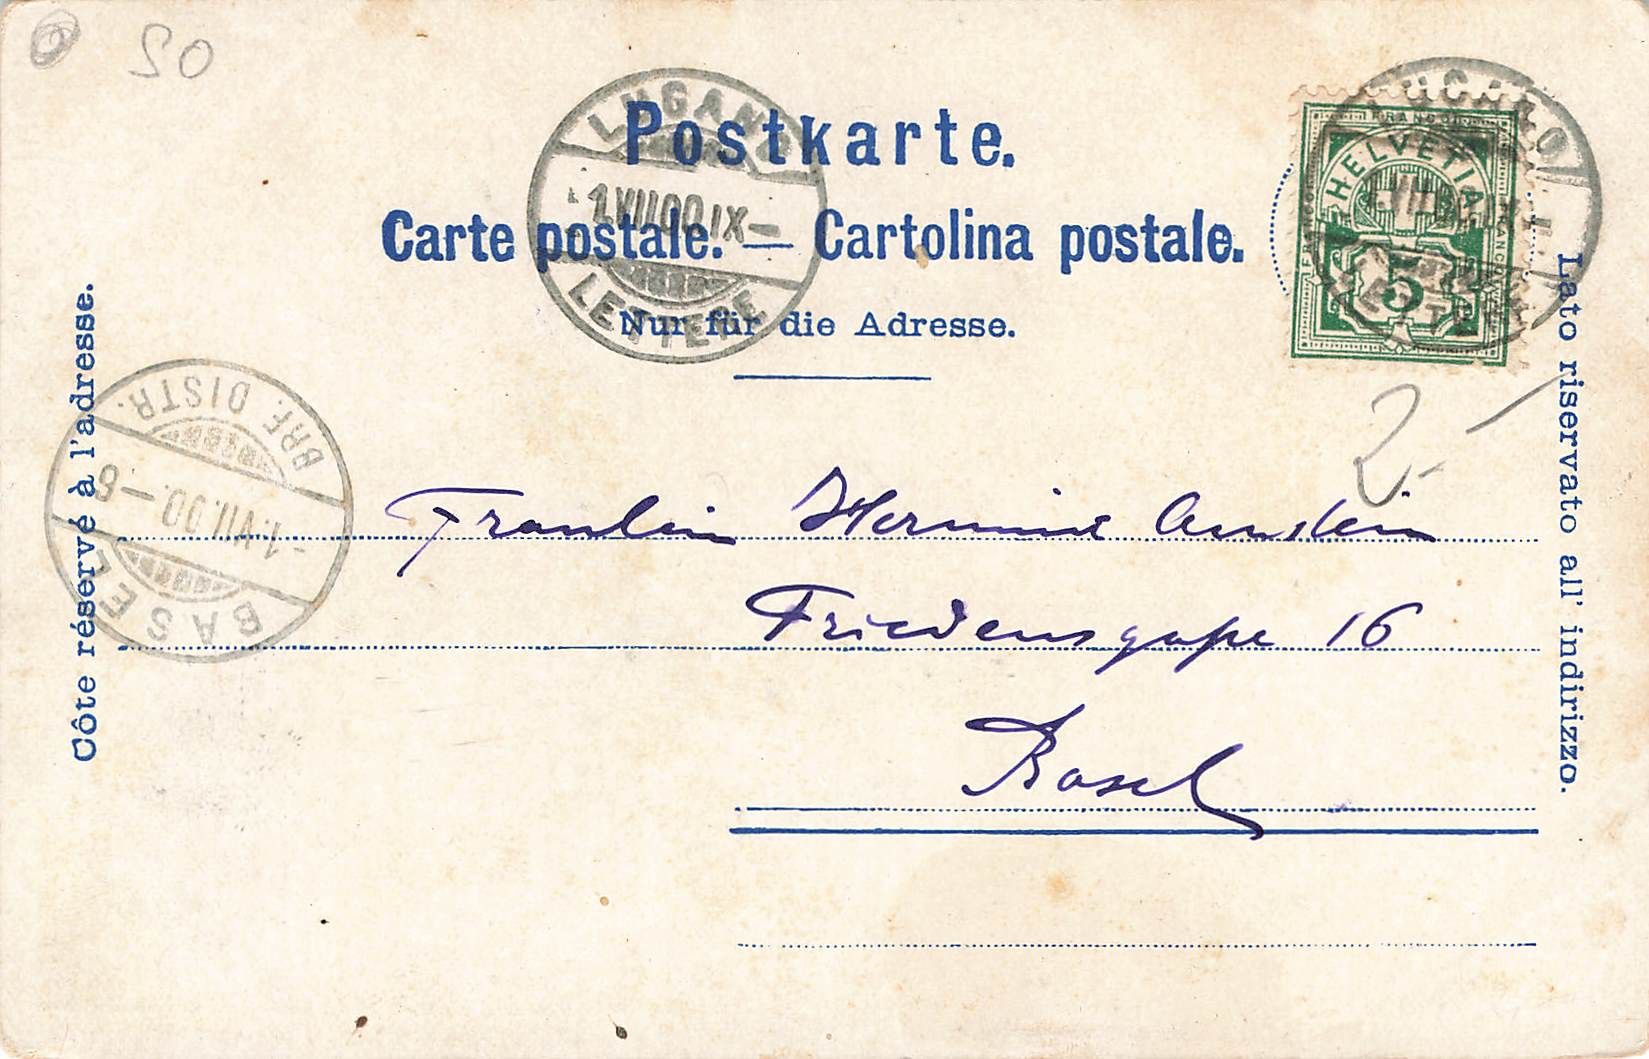 50
Postkarte.
Carte postale. — Cartolina postale.
Nur für die Adresse.
Côte réservé à l'adresse.
Lato riservato all' indirizzo.
LUGANO
1.VII.00.IX-
LETTERE
FRANCO
HELVETIA
5
LUGANO
VII
LETTERE
BRF. DISTR.
-1.VII.00.-6
BASEL
2.-
Fraulein Hermine Arnstein
Friedensgaße 16
Basel